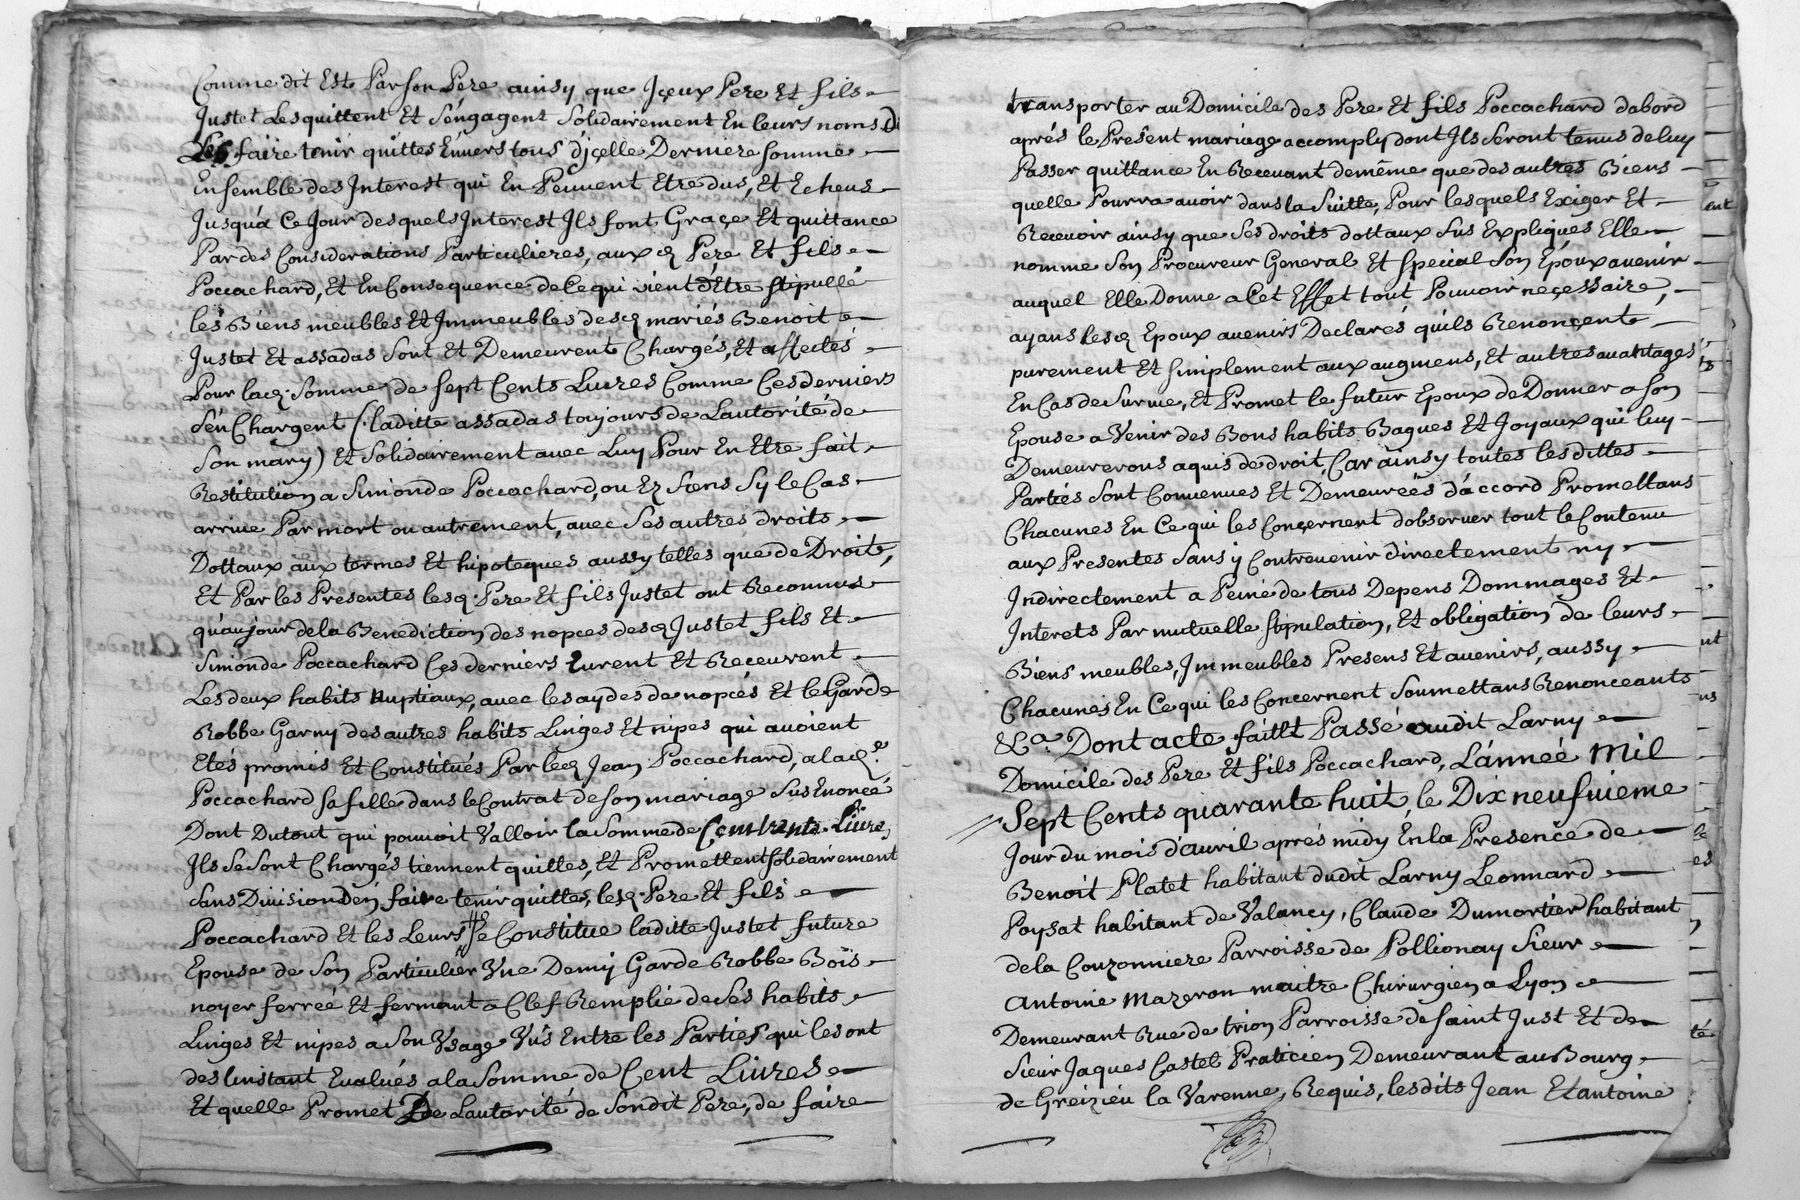 Comme dit Est Par son Pere ainsy que Jçeux Pere Et fils
Justet Les quittent Et s'éngagent Solidairement En leurs noms D
Les faire tenir quittes Enuers tous d'jçelle Derniere somme
Ensemble des Interest qui En Peuuent Etre dus, Et Echeus
Jusqu'á Ce Jour desquels Interest Ils font Graçe Et quittance
Par des Considerations Particulieres, aux q Pere Et fils
Poccachard, Et En Consequence de Ce qui vient d'Etre stipullé
les Biens meubles Et Immeubles desq mariés Benoit
Justet Et assadas sont Et Demeurent Chargés, Et affectés
Pour laq. Somme de sept Cents Liures Comme Ces derniers
s'én Chargent (laditte assadas toujours de Lautorité de
son mary) Et Solidairement auec Luy Pour En Etre fait
Restitution a Simonde Poccachard, ou Ez siens sy le Cas
arriue Par mort ou autrement, auec ses autres droits
Dottaux aux termes Et hipoteques aussy telles que de Droit,
Et Par les Presentes lesq. Pere Et fils Justet ont Reconnus
qu'au jour de la Benediction des nopces desq Justet fils Et
Simonde Poccachard Ces derniers Eurent Et Receurent
Les deux habits nuptiaux, auec les aydes de nopcés Et le Garde
Robbe Garny des autres habits Linges Et nipes qui auoient
Etés promis Et Constitués Par leq Jean Poccachard, a laq.e
Poccachard sa fille dans le Contrat de son mariage Sus Enoncé
Dont Dutout qui pouuoit Valloir la Somme de Cent trante Liures
Ils se sont Chargés tiennent quittes, Et Promettent solidairement
Sans Diuision d'én faire tenir quittes, lesq. Pere Et fils
Poccachard Et les Leurs se Constitue laditte Justet future
Epouse de Son Particulier Vne Demy Garde Robbe Bois
noyer ferreé Et fermant a Clef Remplie de Ses habits
Linges Et nipes a Son Vsage Vús Entre les Parties qui les ont
des linstant Eualués a la Somme de Cent Liures
Et quelle Promet De Lautorité de Sondit Pere, de faire
transporter au Domicile des Pere Et fils Poccachard dabord
aprés le Present mariage accomply dont Ils Seront tenus de luy
Passer quittance En Receuant demême que des autres Biens
quelle Pourra auoir dans la Suitte, Pour lesquels Exiger Et
Receuoir ainsy que Ses droits dottaux Sus Expliqués Elle
nomme Son Procureur General Et special Son Epoux auenir
auquel Elle Donne a Cet Effet tout Pouuoir neçessaire,
ayans lesq Epoux auenirs Declarés qu'ils Renonçent
purement Et simplement aux augmens, Et autres auantages
En Cas de Suruie, Et Promet le futur Epoux de Donner a Son
Epouse a Venir des Bons habits Bagues Et Joyaux qui luy
Demeurerons aquis de droit, Car ainsy toutes lesdittes
Partiés Sont Conuenues Et Demeureés d'áccord Promettans
Chacunes En Ce qui les Conçernent d'obseruer tout le Contenu
aux Presentes Sans y Contreuenir directement ny
Indirectement a Peine de tous Depens Dommages Et
Interets Par mutuelle stipulation, Et obligation de leurs
Biens meubles, Immeubles Presens Et auenirs, aussy
Chacunes En Ce qui les Concernent Soumettans Renonceants
&La. Dont acte fait & Passé audit Larny
Domicile des Pere Et fils Poccachard, L'ánneé Mil
Sept Cents quarante huit, le Dix neufuieme
Jour du mois d'áuril aprés midy En la Presence de
Benoit Platet habitant dudit Larny Leonnard
Poysat habitant de Valancy, Claude Dumortier habitant
dela Couzonniere Parroisse de Pollionay Sieur
Antoine Mazeron maitre Chirurgien a Lyon
Demeurant Rue de trion Parroisse de saint Just Et de
Sieur Jaques Castet Praticien Demeurant au Bourg
de Greizieu la Varenne, Requis, lesdits Jean Et antoine